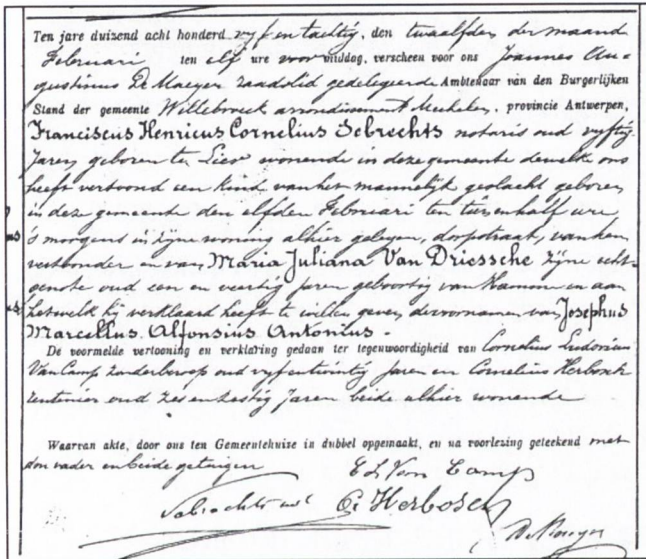 Ten jare duizend acht honderd vyf en tachtig, den twaalfden der maand
Februari ten elf ure voor middag, verscheen voor ons Joannes Au-
gustinus De Maeyer raadslid gedelegeerde Ambtenaar van den Burgerlijken
Stand der gemeente Willebroeck arrondissement Mechelen, provincie Antwerpen,
Franciscus Henricus Cornelius Sebrechts notaris oud vyftig
Jaren geboren te Lier wonende in deze gemeente dewelke ons
heeft vertoond een kind van het mannelijk geslacht geboren
in deze gemeente den elfden Februari ten half ure
's morgens in zijne woning alhier gelegen, dorpstraat, van hem
vertoonder en van Maria Juliana Van Driessche zijne echt-
genote oud een en veertig jaren geboortig van Hamme en aan
hetwelk hij verklaard heeft te willen geven de voornamen van Josephus
Marcellus Alfonsius Antonius.-
De voormelde vertooning en verklaring gedaan ter tegenwoordigheid van Cornelius Ludovicus
Van Camp zonder beroep oud vyf en twintig Jaren en Cornelius Herbosch
rentenier oud zes en zestig Jaren beide alhier wonende
Waarvan akte, door ons ten Gemeentehuize in dubbel opgemaakt, en na voorlezing geteekend met
den vader en beide getuigen
C L Van Camp
Sebrechts not
C: Herbosch
De Maeyer